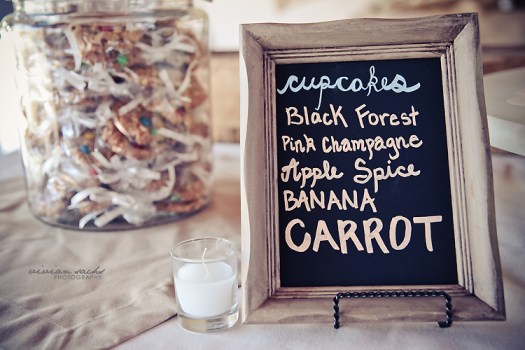 cupcakes
Black Forest
Pink Champagne
Apple Spice
BANANA
CARROT
vivian sachs
PHOTOGRAPHY